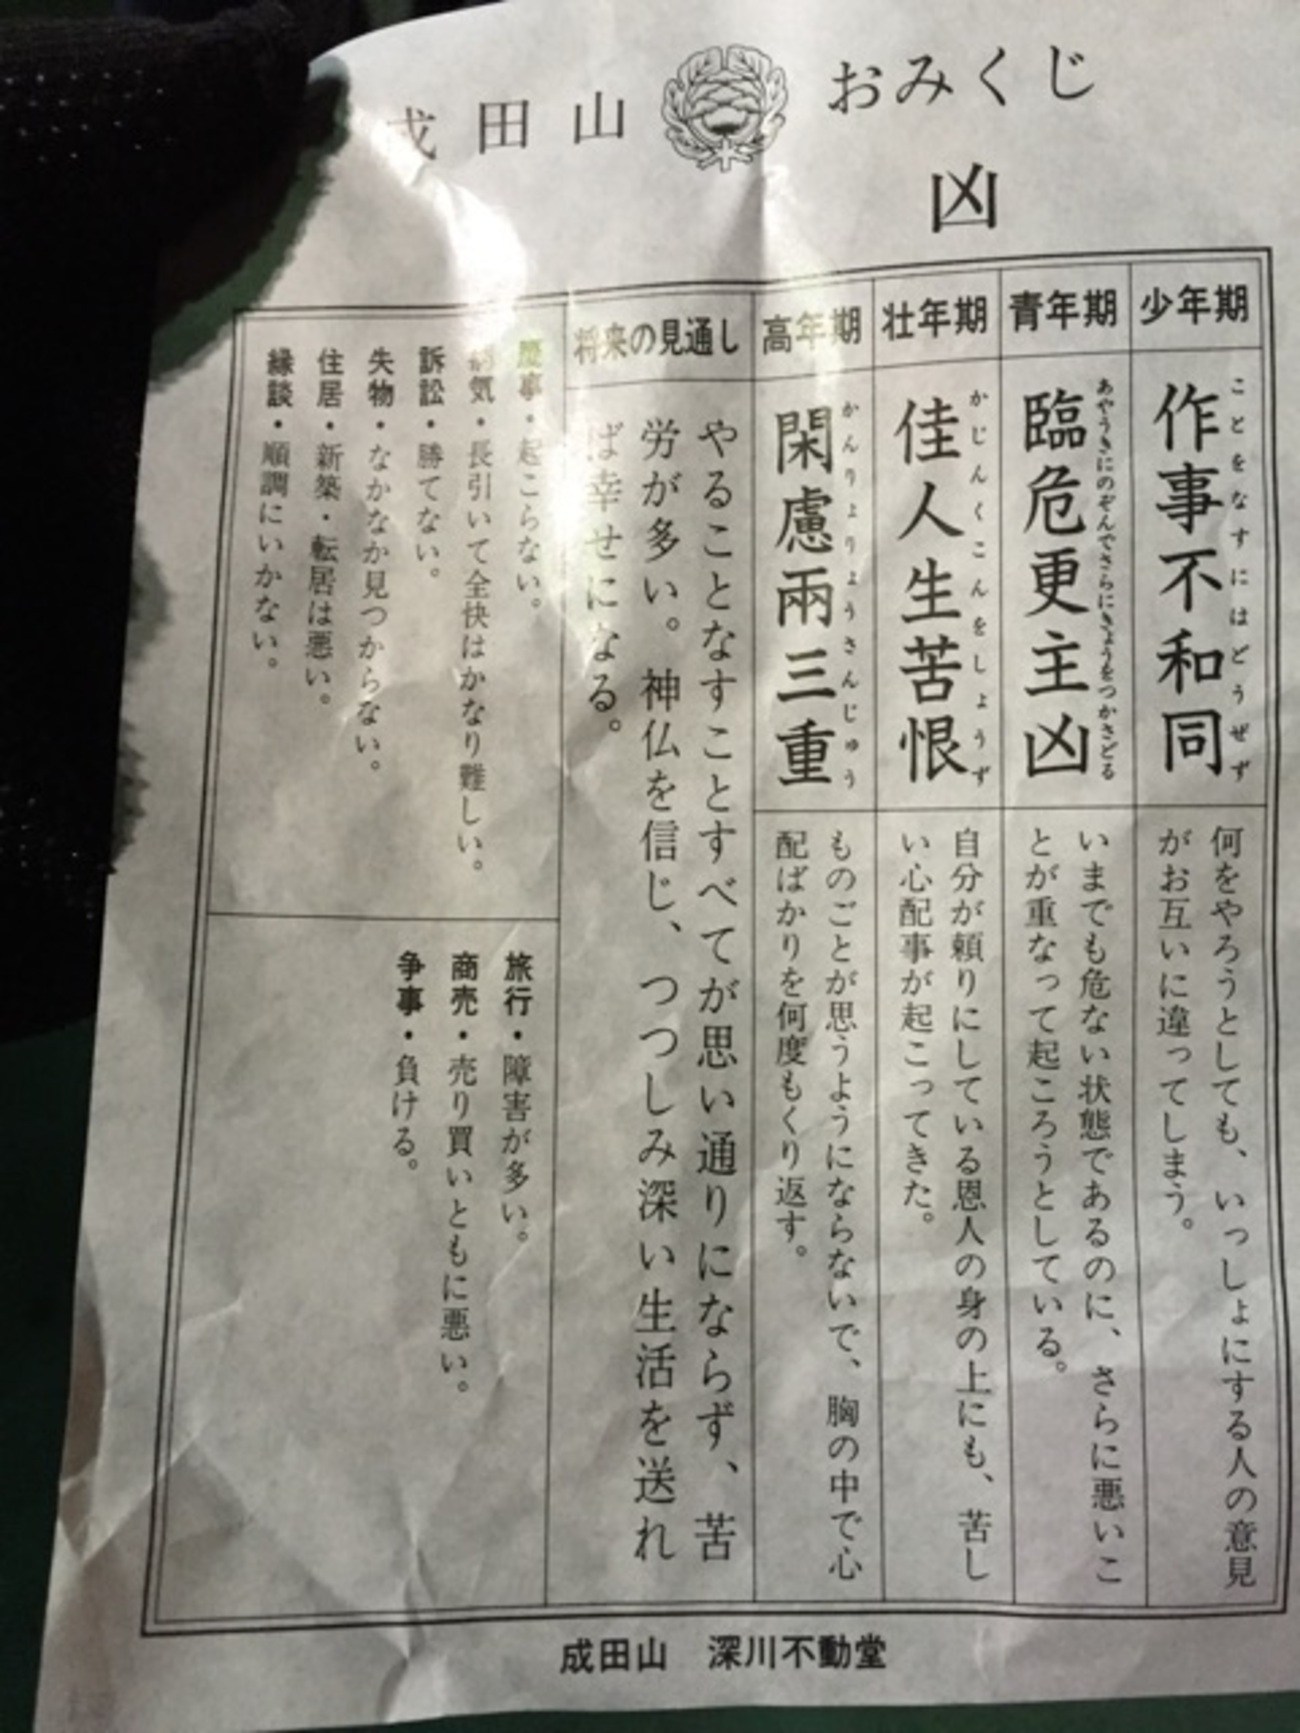 おみくじ
成田山
凶
少年期
作事不和同
ことをなすにはどうぜず
何をやろうとしても、いっしょにする人の意見
がお互いに違ってしまう。
青年期
臨危更主凶
あやうきにのぞんでさらにきょうをつかさどる
いまでも危ない状態であるのに、さらに悪いこ
とが重なって起ころうとしている。
壮年期
佳人生苦恨
かじんくこんをしょうず
自分が頼りにしている恩人の身の上にも、苦し
い心配事が起こってきた。
高年期
閑慮兩三重
かんりょりょうさんじゅう
ものごとが思うようにならないで、胸の中で心
配ばかりを何度もくり返す。
将来の見通し
やることなすことすべてが思い通りにならず、苦
労が多い。神仏を信じ、つつしみ深い生活を送れ
ば幸せになる。
慶事・起こらない。
病気・長引いて全快はかなり難しい。
訴訟・勝てない。
失物・なかなか見つからない。
住居・新築・転居は悪い。
縁談・順調にいかない。
旅行・障害が多い。
商売・売り買いともに悪い。
争事・負ける。
成田山 深川不動堂